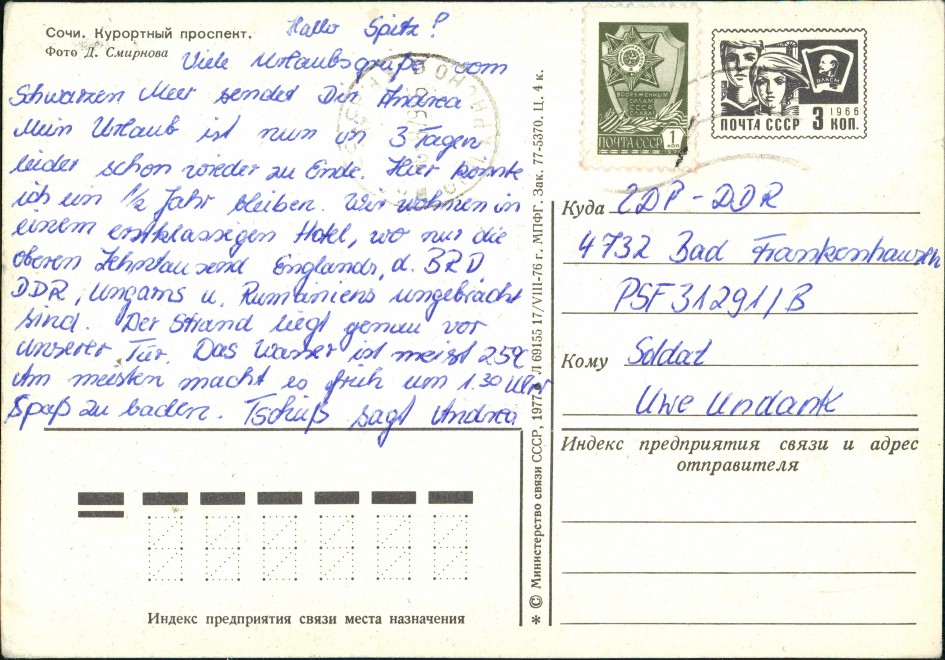 Сочи. Курортный проспект.
Фото Д. Смирнова
Hallo Spitz!
Viele Urlaubsgrüße vom
Schwarzen Meer sendet Dir Andrea
Mein Urlaub ist nun in 3 Tagen
leider schon wieder zu Ende. Hier könnte
ich ein 1/2 Jahr bleiben. Wir wohnen in
einem erstklassegen Hotel, wo nur die
oberen Zehntausend Englands, d. BRD
DDR, Ungarns u. Rumäniens ungebracht
sind. Der Strand liegt genau vor
unserer Tür. Das Wasser ist meist 25°C
Am meisten macht es früh um 1.30 Uhr
Spaß zu baden. Tschüß sagt Andrea
Индекс предприятия связи места назначения
* © Министерство связи СССР, 1977. Л 69155 17/VIII-76 г. МПФГ. Зак. 77-5370. Ц. 4 к.
ВООРУЖЕННЫМ
СИЛАМ
СССР
СЛАВА!
ПОЧТА СССР 1
КОП.
ВЛКСМ
1966
ПОЧТА СССР 3 КОП.
Куда ZDP-DDR
4732 Bad Frankenhausen
PSF 31291/B
Кому Soldat
Uwe Undank
Индекс предприятия связи и адрес
отправителя